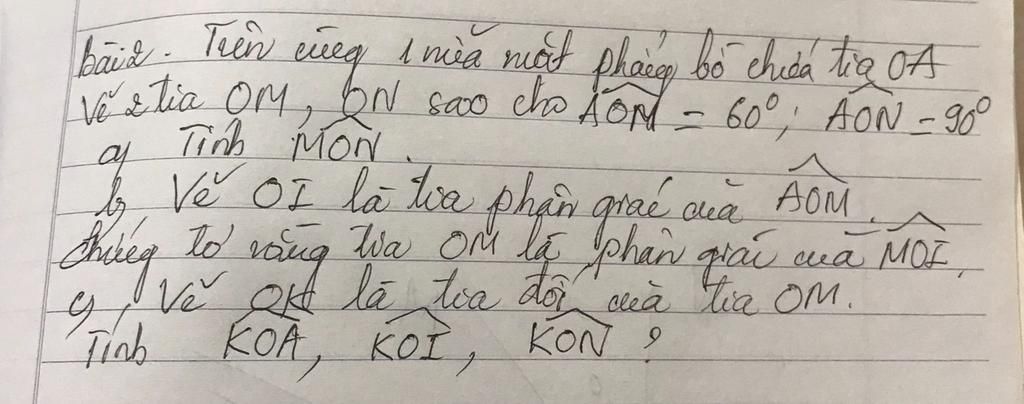 bài 2. Trên cùng 1 nửa mặt phẳng bờ chứa tia OA
Vẽ 2 tia OM, ON sao cho AOM = 60°; AON = 90°
a, Tính MON.
b, Vẽ OI là tia phân giác của AOM.
chứng tỏ rằng tia OM là phân giác của MOI.
c, Vẽ OK là tia đối của tia OM.
Tính KOA, KOI, KON ?